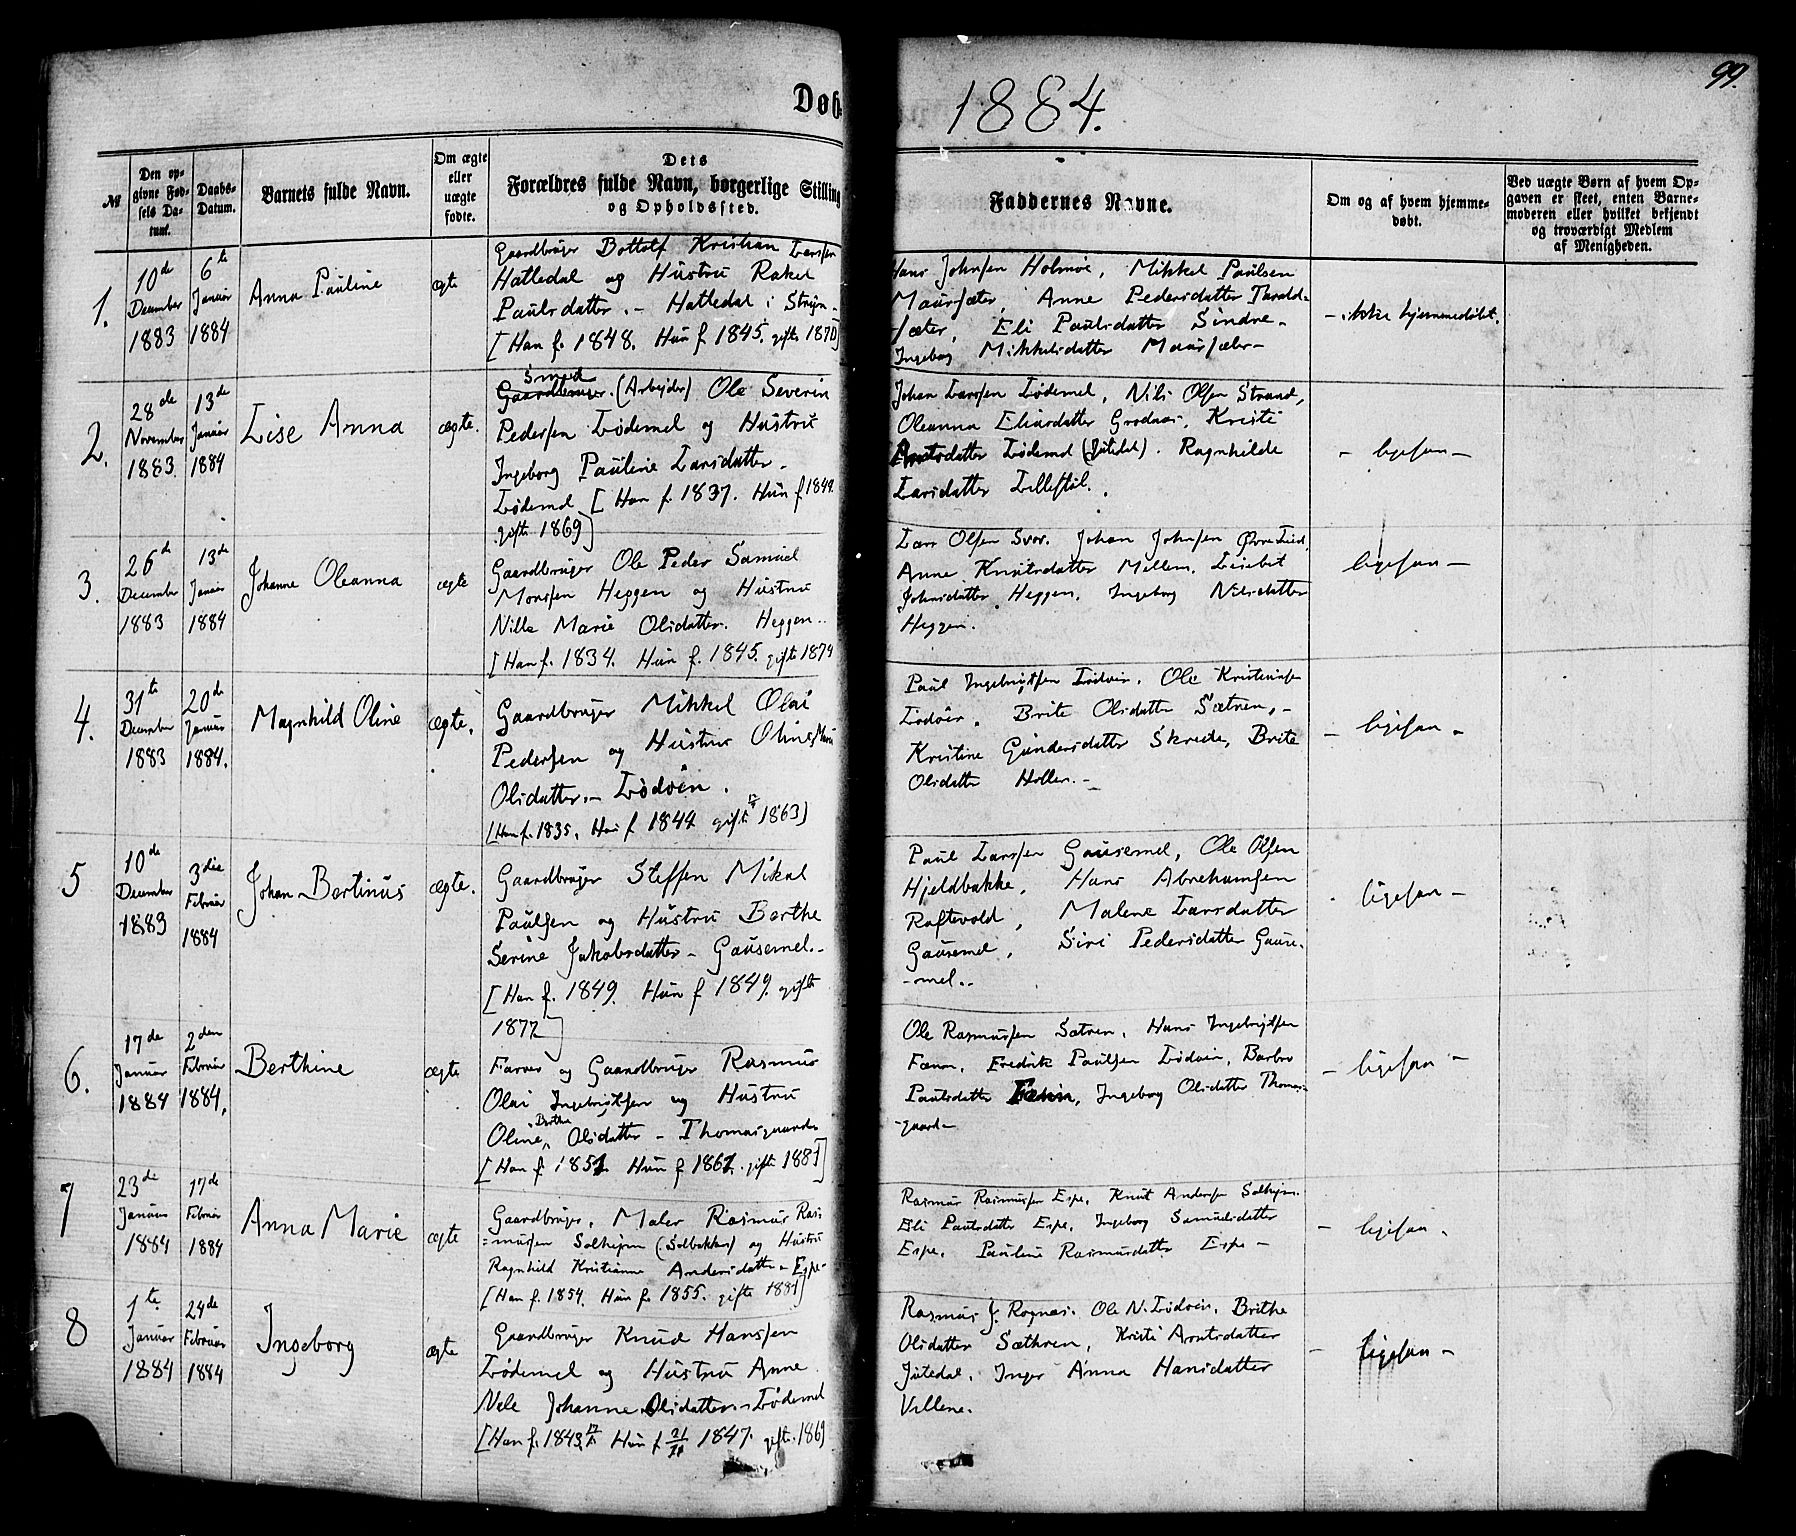 Døb
1884.
99.
№
Den op-
givne Fød-
sels Da-
tum.
Daabs-
Datum.
Barnets fulde Navn.
Om ægte
eller
uægte
fødte.
Dets
Forældres fulde Navn, borgerlige Stilling
og Opholdssted.
Faddernes Navne.
Om og af hvem hjemme-
døbt.
Ved uægte Børn af hvem Op-
gaven er skeet, enten Barne-
moderen eller hvilket bekjendt
og troværdigt Medlem
af Menigheden.
1.
10de
December
1883
6te
Januar
1884
Anna Pauline
ægte
Gaardbruger Bottolf Kristian Larssen
Hatledal og Hustru Rakel
Paulsdatter. - Hatledal i Stryn -
[Han f. 1848. Hun f 1845. gift 1870]
Hans Johnsen Holmøe, Mikkel Paulsen
Maursæter, Anne Pedersdatter Tarald-
sæter, Eli Paulsdatter Sindre -
Ingeborg Mikkelsdatter Maursæter -
- ikke hjemmedøbt.
2.
28de
November
1883.
13de
Januar
1884
Lise Anna
ægte.
Smed
Gaardbruger. (Arbejder) Ole Severin
Pedersen Lødemel og Hustru
Ingeborg Pauline Larsdatter -
Lødemel [Han f. 1837. Hun f 1844.
gift 1869]
Johan Larssen Lødemel, Nils Olsen Strand,
Oleanna Eliasdatter Grodaas, Kristi
Arntsdatter Lødemel (Jøtedal). Ragnhilde
Larsdatter Lillestøl.
- ligesaa -
3.
26de
December
1883
13de
Januar
1884
Johanne Oleanna
ægte
Gaardbruger Ole Peder Samuel
Monssen Heggen og Hustru
Nille Marie Olsdatter. Heggen -
[Han f. 1834. Hun f. 1845. gift 1874
Lars Olsen Svor. Johan Johnsen Øvre
Anne Knutsdatter Mellem. Lisebet
Johnsdatter Heggen, Ingeborg Nilsdatter
Heggen.
ligesaa -
4.
31te
December
1883
20de
Januar
1884.
Magnhild Oline
ægte.
Gaardbruger Mikkel Olai
Pedersen og Hustru Oline Marie
Olsdatter. - Lødøen.
[Han f. 1835. Hun f 1844 gift 1863]
Paul Ingebrigtsen Lødøen. Ole Kristensen
Lødøen, Brite Olsdatter Sætren, -
Kristine Gundersdatter Skrede, Brite
Olsdatter Holler. -
- ligesaa -
5
10de
December
1883
3die
Februar
1884
Johan Bertinus
ægte.
Gaardbruger Steffen Mikal
Paulsen og Hustru Berthe
Serine Jakobsdatter - Gausemel. -
[Han f. 1849. Hun f 1849. gift
1872]
Paul Larssen Gausemel, Ole Olsen
Hjeldbakke, Hans Abrahamsen
Raftevold, Malene Larsdatter
Gausemel, Siri Pedersdatter Gause-
-mel. -
ligesaa -
6.
17de
Januar
1884
2den
Februar
1884.
Berthine
ægte
Farver og Gaardbruger Rasmus
Olai Ingebrigtsen og Hustru
Brithe
Oline Olsdatter - Thomasgaarden
[Han f. 1851. Hun f 1861. gift 1881]
Ole Rasmussen Sætren, Hans Ingebrigtsen
Fænn, Fredrik Paulsen Lødøen, Barbro
Paulsdatter Fænn, Ingeborg Olsdatter Thomas-
-gaard -
- ligesaa -
7
23de
Januar
1884
17de
Februar
1884
Anna Marie
ægte
Gaardbruger, Maler Rasmus Ras-
=mussen Solheim (Solbakken) og Hustru
Ragnhild Kristianne Andersdatter - Espe -
[Han f. 1854. Hun f. 1855. gift 1881]
Rasmus Rasmussen Espe, Knut Andersen Solheim.
Eli Paulsdatter Espe, Ingeborg Samuelsdatter
Espe, Pauline Rasmusdatter Espe -
- ligesaa.
8
1te
Januar
1884
24de
Februar
1884
Ingeborg
ægte
Gaardbruger Knud Hanssen
Lødemel og Hustru Anne
Nele Johanne Olsdatter - Lødemel
[Han f. 1843 Hun f 1847. gift 1869
Rasmus J. Rognæs. Ole N. Lødøen, Brithe
Olsdatter Sæthren, Kristi Arntsdatter
Jøtedal, Inger Anna Hansdatter
Vellene.
- ligesaa -